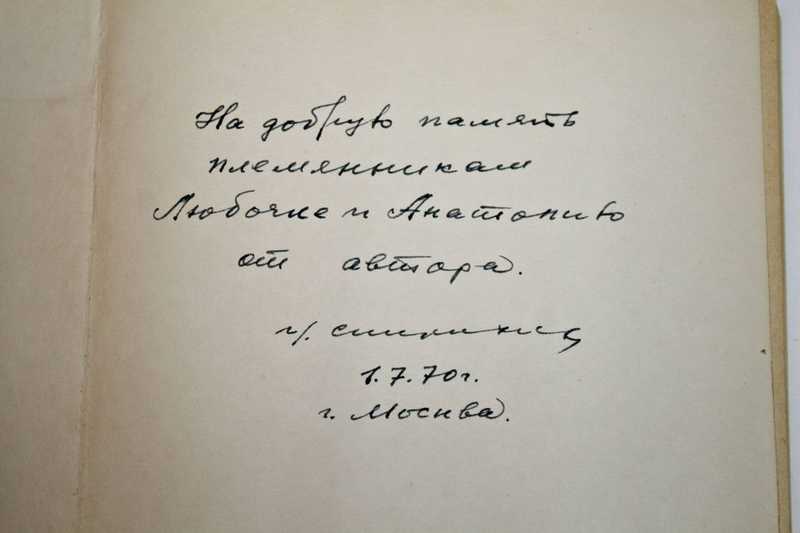 На добрую память
племянникам
Любочке и Анатолию
от автора.
1.7.70г.
г. Москва.